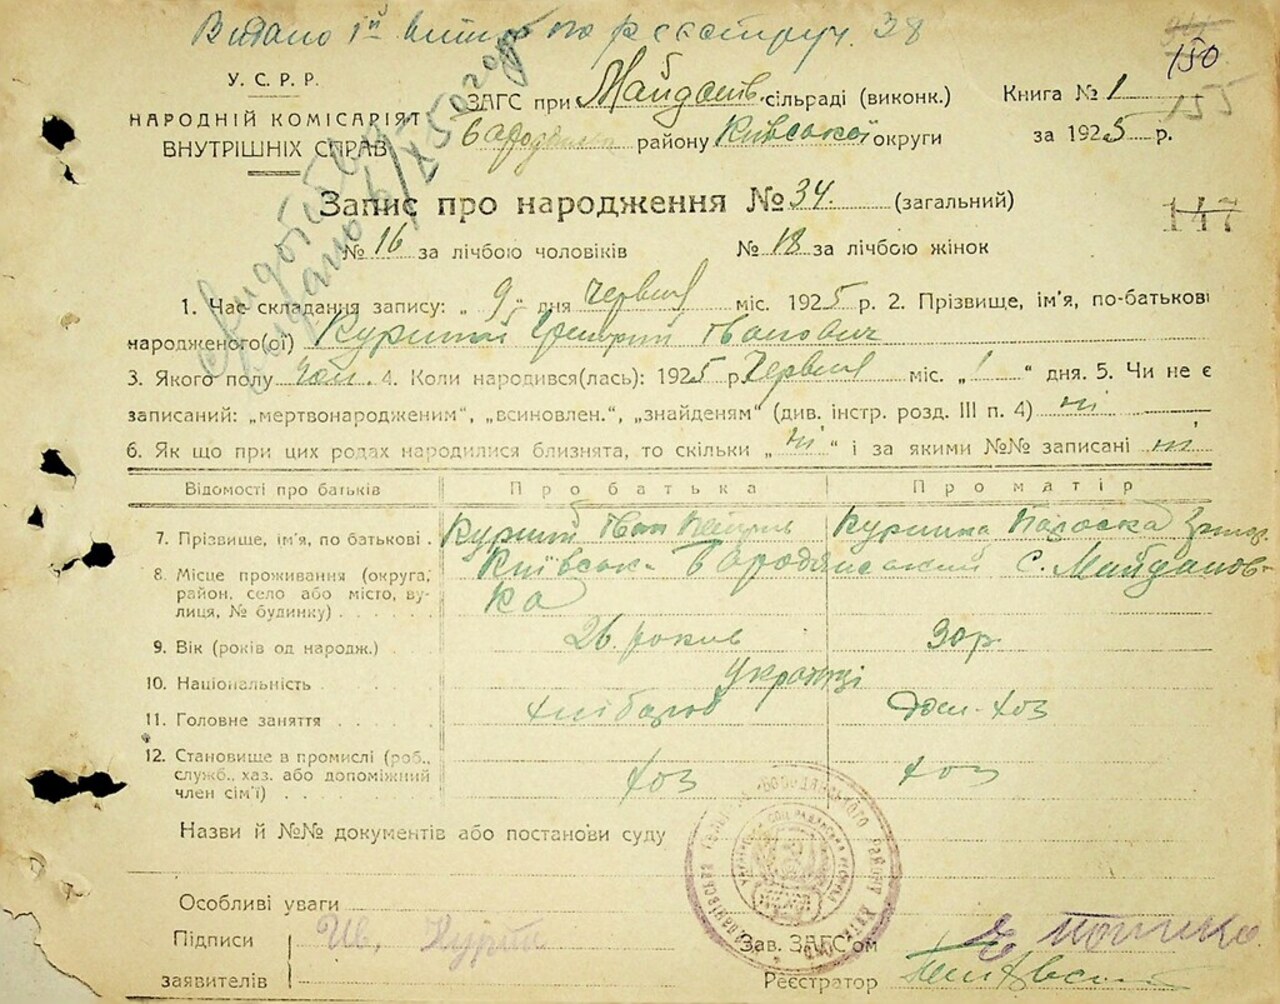 Видано 1й витяг по реєстру ч. 38
150
155
У. С. Р. Р.
НАРОДНІЙ КОМІСАРІЯТ
ВНУТРІШНІХ СПРАВ
ЗАГС при Майдан. сільраді (виконк.)
району Київської округи
Книга № 1
за 1925 р.
Запис про народження № 34. (загальний)
147
№ 16 за лічбою чоловіків № 18 за лічбою жінок
1. Час складання запису: „ 9 “ дня Червня міс. 1925 р. 2. Прізвище, ім'я, по-батькові
народженого(ої) Григорий Іванович
3. Якого полу чол. 4. Коли народився(лась): 1925 р. Червня міс. „ 1 “ дня. 5. Чи не є
записаний: „мертвонародженим“, „всиновлен.“, „знайденям“ (див. інстр. розд. III п. 4) ні
6. Як що при цих родах народилися близнята, то скільки „ ні “ і за якими №№ записані ні
Відомості про батьків Про батька Про матір
7. Прізвище, ім'я, по батькові . Іван
8. Місце проживання (округа, район, село або місто, вулиця, № будинку) Київськ. Бородянський С. Майданов-
ка
9. Вік (років од народж.) 26 років 30 р.
10. Національність Українці
11. Головне заняття хлібороб Дом. хоз
12. Становище в промислі (роб., служб., хаз. або допоміжний член сім'ї) хоз хоз
Назви й №№ документів або постанови суду
Особливі уваги
Підписи
заявителів
Ив.
Зав. ЗАГС'ом
Реєстратор